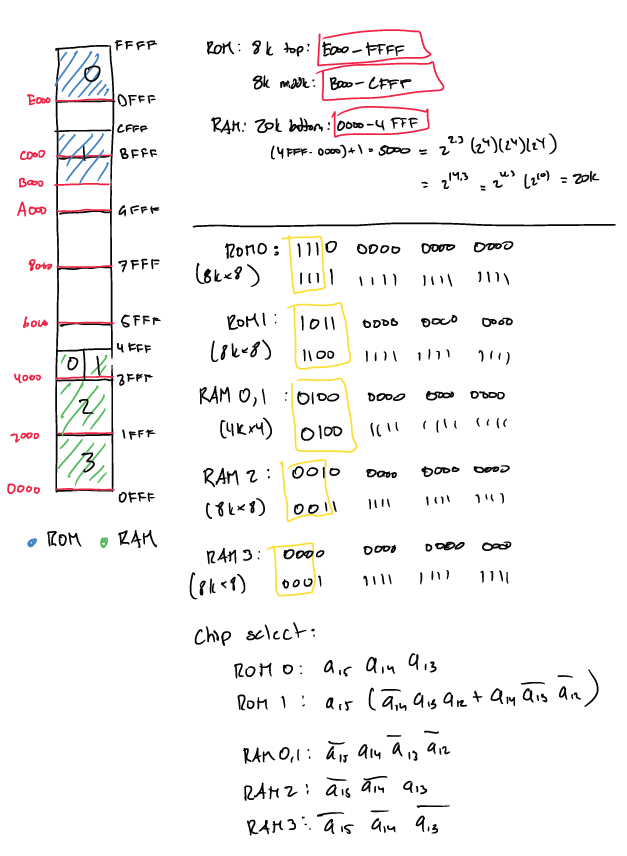 FFFF
0
E000
DFFF
CFFF
C000
1
BFFF
B000
A000
9FFF
8000
7FFF
6000
5FFF
4FFF
0 1
4000
3FFF
2
2000
1FFF
3
0000
0FFF
ROM RAM
ROM: 8k top: E000-FFFF
8k middle: B000-CFFF
RAM: 20k bottom: 0000-4FFF
(4FFF-0000)+1 = 5000 = 2^2.3 (2^4)(2^4)(2^4)
= 2^14.3 = 2^4.3 (2^10) = 20k
ROM0: 1110 0000 0000 0000
(8k×8) 1111 1111 1111 1111
ROM1: 1011 0000 0000 0000
(8k×8) 1100 1111 1111 1111
RAM 0,1: 0100 0000 0000 0000
(4k×4) 0100 1111 1111 1111
RAM 2: 0010 0000 0000 0000
(8k×8) 0011 1111 1111 1111
RAM3: 0000 0000 0000 0000
(8k×8) 0001 1111 1111 1111
Chip select:
ROM 0: a₁₅ a₁₄ a₁₃
ROM 1: a₁₅ (a̅₁₄ a₁₃ a₁₂ + a₁₄ a̅₁₃ a̅₁₂)
RAM 0,1: a̅₁₅ a₁₄ a̅₁₃ a̅₁₂
RAM 2: a̅₁₅ a̅₁₄ a₁₃
RAM 3: a̅₁₅ a̅₁₄ a̅₁₃